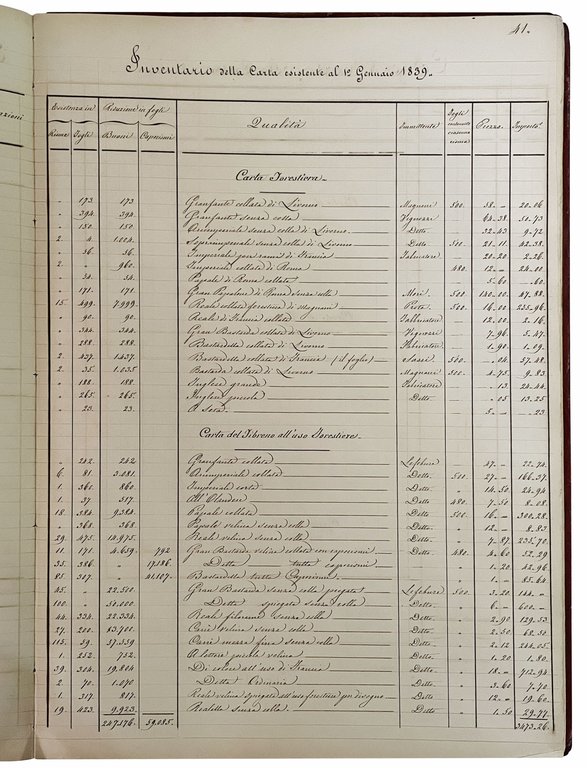 41.
Inventario della Carta esistente al 1º Gennaio 1839.
Esistenza in Riduzione in fogli Qualità Immittente Fogli Prezzo Importo
Risme Fogli Buoni Caporioni
Carta Forestiera
" 173. 173 Granfante collata di Livorno Magnani 500. 58 " 20.06
" 394. 394. Granfante senza colla Vignozzi " 64.38 50.73
" 150. 150 di Livorno Detto " 32.43 9.72
2 4. 1.004. senza colla di Livorno Detto 500 21.11 42.38
" 36. 36. Imperiale per rami di Francia " 20.20 2.26
2. " 960. Imperiale collata di Roma 480. 12 " 24.00
" 34. 34. Papale di Roma collata 5.60 .60
" 171. 171. Gran Papalone di Roma senza colla Mori 500 140.00 47.88
15. 499. 7.999. Reale collata 500 16.00 255.96
" 90. 90. Reale di Francia collata " 12.00 2.16
" 344. 344. Gran Bastarda collata di Livorno Vignozzi " 7.96 5.47
" 288. 288. Bastardella collata di Livorno " 1.90 1.09
2. 437. 1437. Bastardella collata di Francia (il foglio) Sassi 500 .04 57.48
2 35. 1.035 Bastarda collata di Livorno Magnani 500. 4.75 9.83
" 188. 188. Inglese grande " .13 24.44
" 265. 265. Inglese piccola Detto " .05 13.25
" 23. 23. A Seta 5 " .23
Carta del Fibreno all'uso Forestiero
" 242. 242. Granfante collata Lefebure 47 " 22.74
6. 81. 3.081. collata Detto 500 27 " 166.37
1. 360. 860. Imperiale corta Detto " 14.50 24.94
1. 37. 517. All'Olandese Detto 480 7.50 8.08
18. 384 9.384. Papale collata Detto 500 16 " 300.28
" 368. 368. Papale velina senza colla Detto " 12 " 8.83
29. 475. 14.975. Reale velina senza colla Detto " 7.87 235.70
11. 171. 4.659. 792 Gran Bastarda velina collata con caporioni Detto 480. 4.60 52.29
35. 386. " 17.186. Detta tutta caporioni " 1.20 42.96
85. 307. " 41.107. Bastardella tutta Caporioni " 1 " 85.64
45. " 22.500. Gran Bastarda senza colla piegata Lefebure 500. 3.20 144 "
100. " 50.000. Detta spiegata senza colla Detto " 6 " 600 "
44. 334. 22.334. Reale senza colla Detto " 2.90 129.53
27. 200. 13.700. Carré velina senza colla Detto " 2.50 68.50
115. 59. 57.559 Carré mezza fina senza colla Detto " 2.12 244.05
1. 252. 752. A lettere piccola velina Detto " 1.20 1.80
39. 304. 19.804 Di colore all'uso di Francia Detto " 18 " 712.94
2. 70. 1.070 Detta Ordinaria Detto " 3.60 7.70
1. 317. 817. Reale velina spiegata all'uso forestiero per disegno Detto " 12 " 19.60
19. 423. 9.923. Realetta senza colla. Detto " 1.50 29.77
247.176. 59.085. 3473.26.